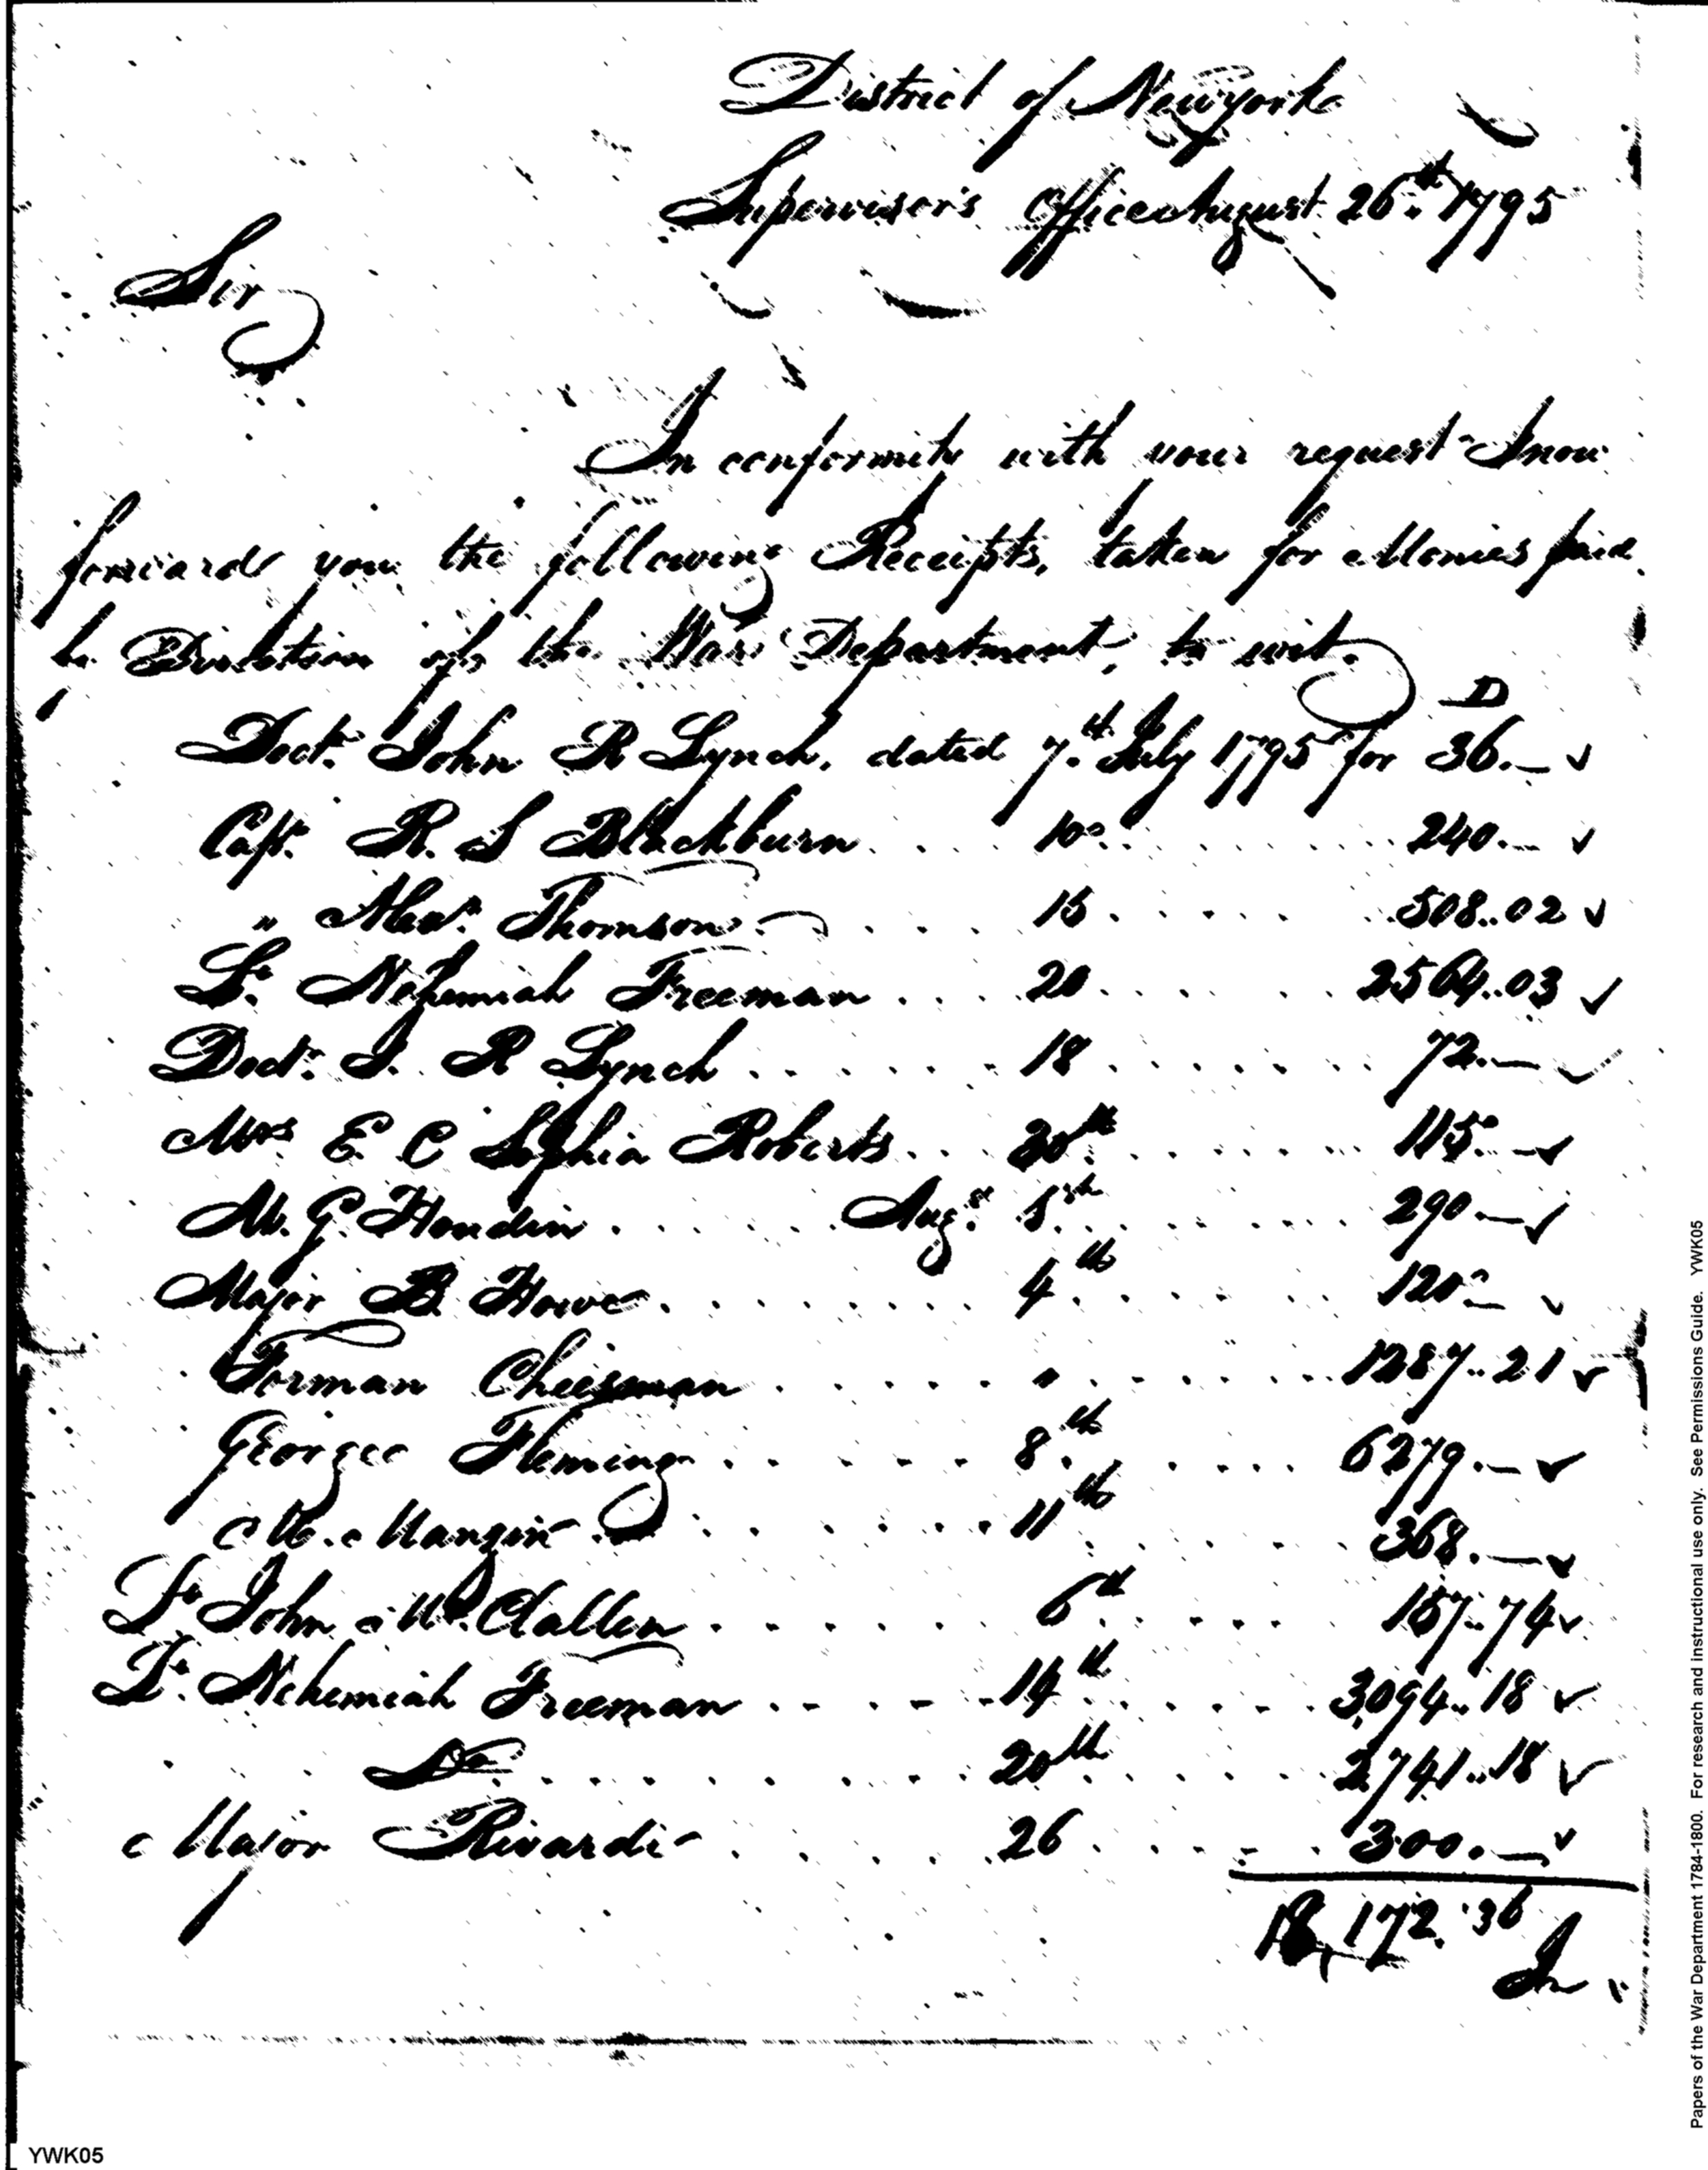 District of Newyork
Supervisor's Office August 26.th 1795
Sir
In conformity with your request I now
forward you the following Receipts, taken for Monies paid
by Direction of the War Department, to wit.
D
Doctr. John R Lynch, dated 7.th July 1795 for 36.— ✓
Capt. R. S Blackburn .... 10 ........ 240.— ✓
" Alexr. Thomson .... 15 ...... 508..02 ✓
Lt. Nehemiah Freeman .... 20 ....... 2564..03 ✓
Doctr. J. R Lynch ....... 18 ....... 72.— ✓
Mrs E C Sophia Roberts ... 20th ...... 115.— ✓
M. G. Houdin ...... Augt. 5th ....... 290.— ✓
Major B Howe ......... 4th ...... 120.— ✓
Forman Cheesman ....... " ....... 1287..21 ✓
George Fleming ...... 8.th ..... 6279.— ✓
M. Mangin ....... 11th ..... 368.— ✓
Lt John Mc. Clallen ....... 6th ..... 157..74 ✓
Lt. Nehemiah Freeman ..... 14th ...... 3094..18 ✓
Do ......... 20th ...... 2741..18 ✓
Major Rivardi ..... 26 ..... 300.— ✓
18,172.36
In
YWK05
Papers of the War Department 1784-1800. For research and instructional use only. See Permissions Guide. YWK05